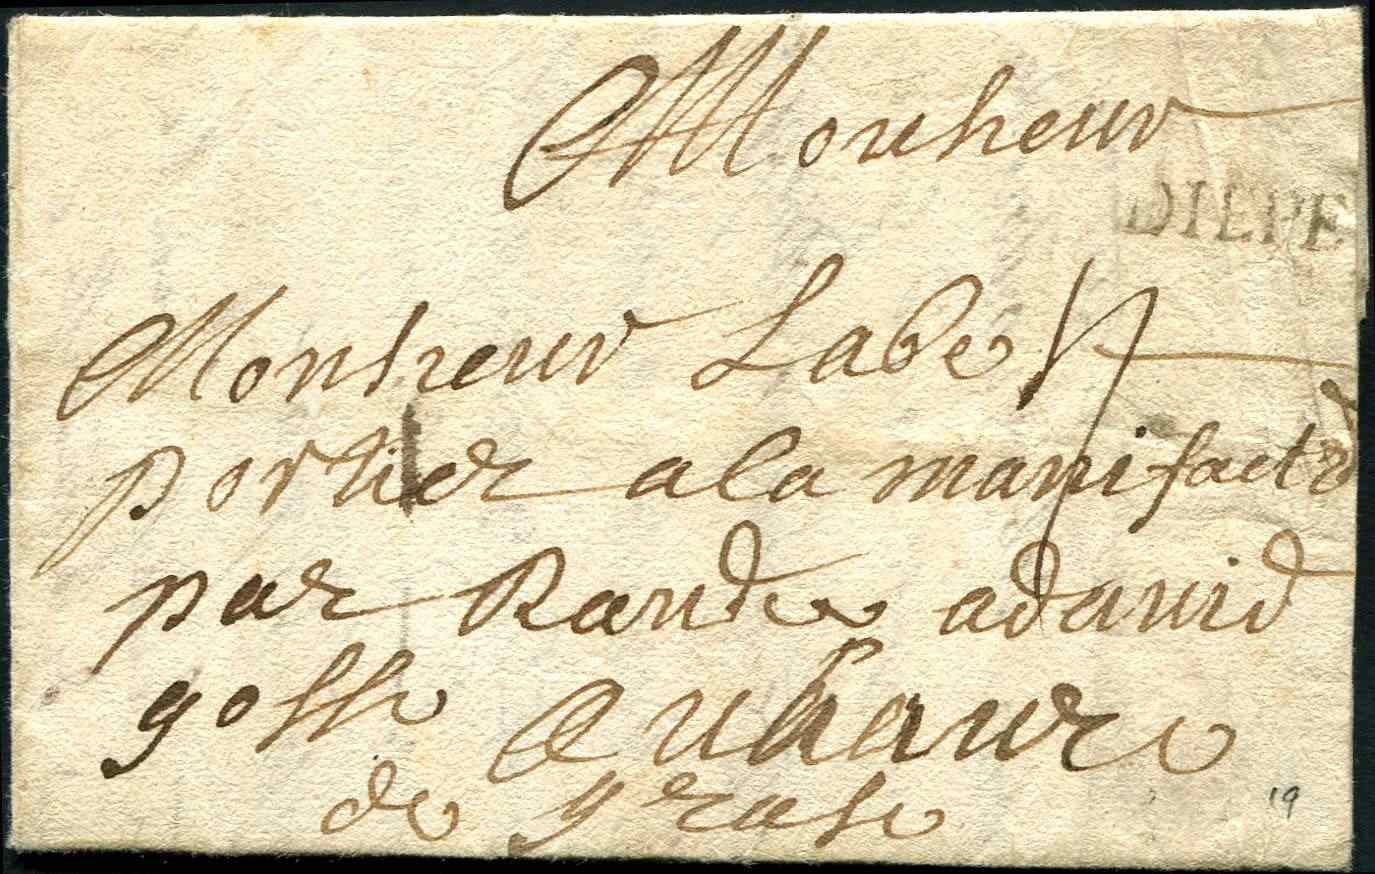 Monsieur
DIEPE
Monsieur Labe
portier a la manifactr
par Rande a david
gosse au havre
de grase
19